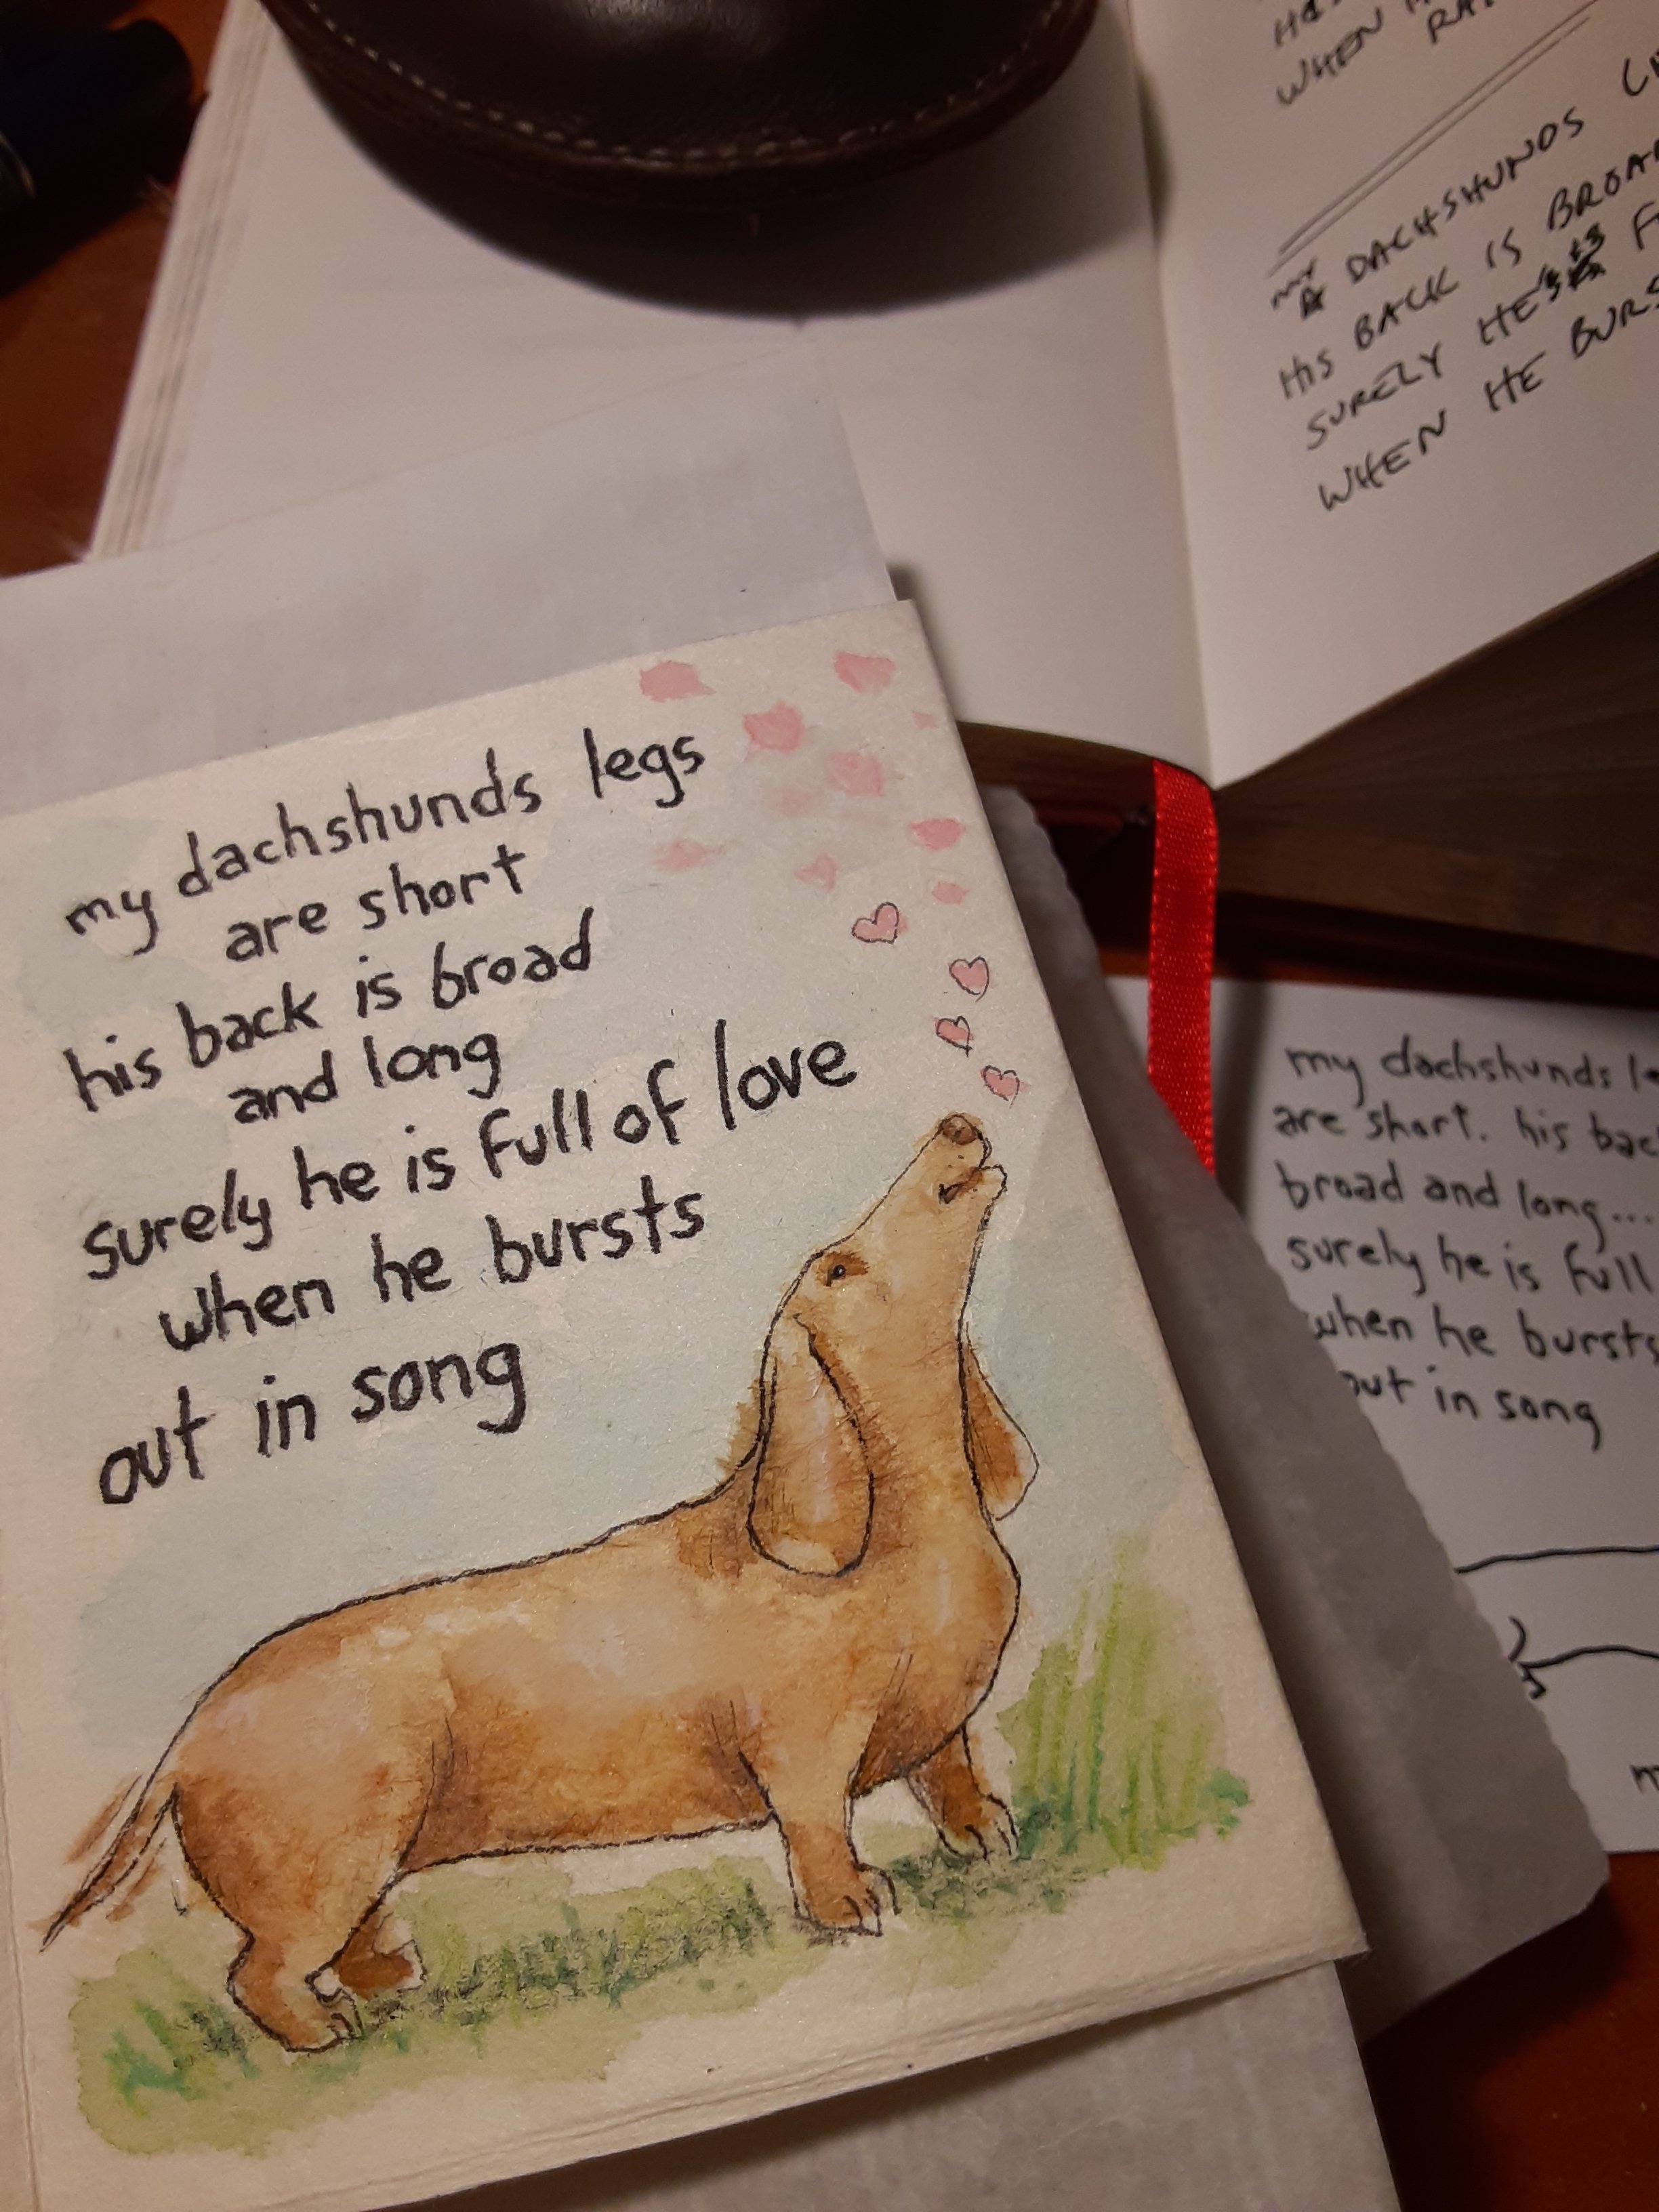 WHEN
MY DACHSHUNDS
HIS BACK IS BROAD
SURELY HE'S
WHEN HE BURS
my dachshunds legs
are short
his back is broad
and long
surely he is full of love
when he bursts
out in song
my dachshunds le
are short. his bac
broad and long...
surely he is full
when he bursts
out in song